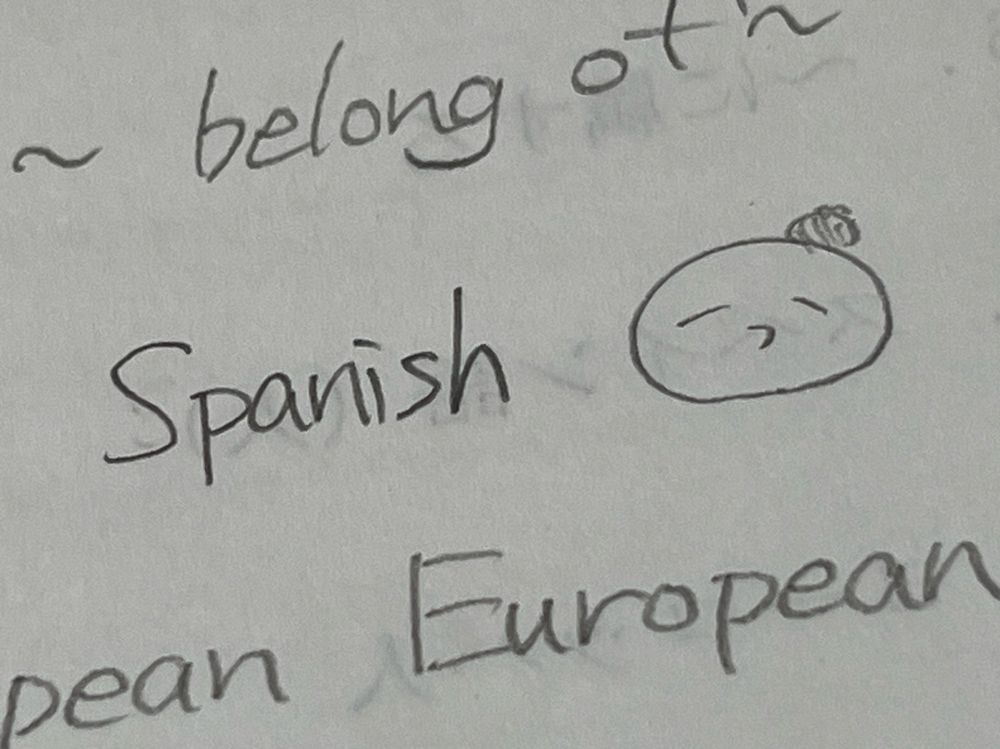 ~ belong of ~
Spanish
pean European